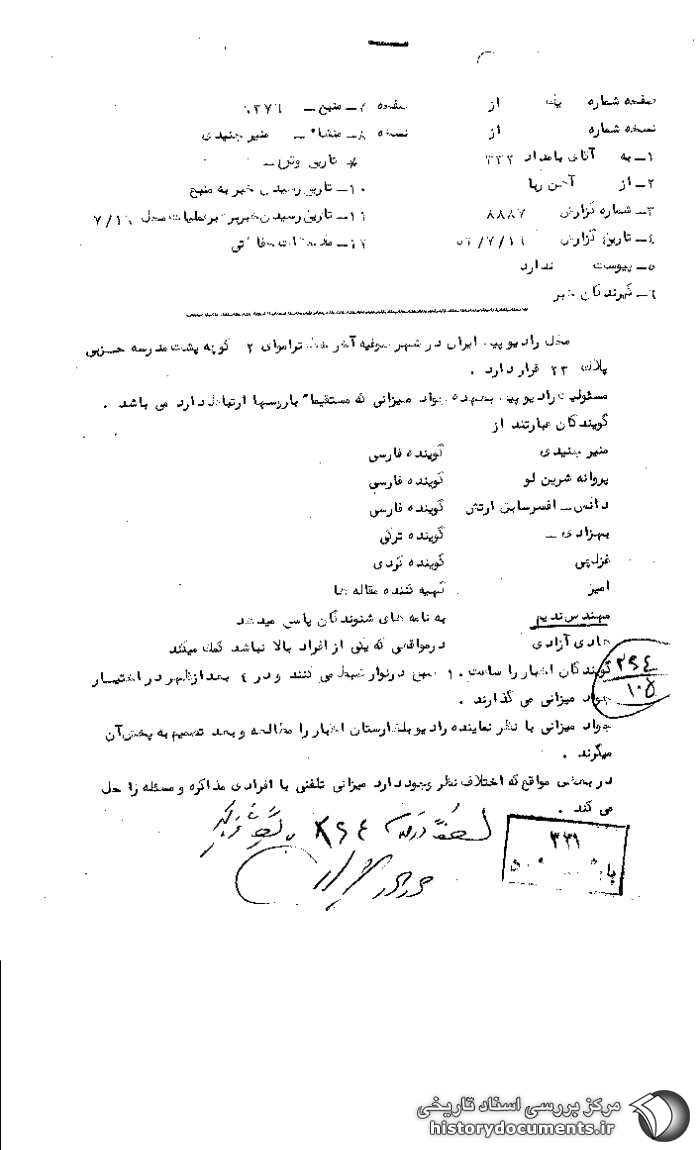 صفحه شماره یک از صفحه ۷ـ منبع ـ ۰۳۷۶
نسخه شماره از نسخه ۸ـ منشاء ـ منیر جنیدی
۱ـ به آقای بامداد ۳۳۲ * تاریخ وقوع ـ
۲ـ از آهن ربا ۱۰ـ تاریخ رسیدن خبر به منبع
۳ـ شماره گزارش ۸۸۸۷ ۱۱ـ تاریخ رسیدن خبر به رهبر عملیات محل ۷/۱۶
۴ـ تاریخ گزارش ۱۲ـ ملاحظات حفاظتی
۵ـ پیوست ندارد
۶ـ گیرندگان خبر
محل رادیو پیک ایران در شهر صوفیه آخر خط تراموای ۲ کوچه پشت مدرسه حزبی
پلاک ۲۳ قرار دارد .
مسئولیت رادیو پیک بعهده جواد میزانی که مستقیما" با روسها ارتباط دارد می باشد .
گویندگان عبارتند از
منیر جنیدی گوینده فارسی
پروانه شرین لو گوینده فارسی
دانش ـ افسر سابق ارتش گوینده فارسی
بهزادی ـ گوینده ترکی
قزلچی گوینده کردی
امیر تهیه کننده مقاله ها
مهندس ندیم به نامه های شنوندگان پاسخ میدهد
هادی آزادی در مواقعی که یکی از افراد بالا نباشد کمک میکند
گویندگان اخبار را ساعت ۱۰ صبح در نوار ضبط می کنند و در ۴ بعد از ظهر در اختیار
جواد میزانی می گذارند .
جواد میزانی با نظر نماینده رادیو بلغارستان اخبار را مطالعه و بعد تصمیم به پخش آن
میگیرند .
در بعضی مواقع که اختلاف نظر وجود دارد میزانی تلفنی با افرادی مذاکره و مسئله را حل
می کند .
۲۹۴
۱۰۵
۳۳۱
مرکز بررسی اسناد تاریخی
historydocuments.ir